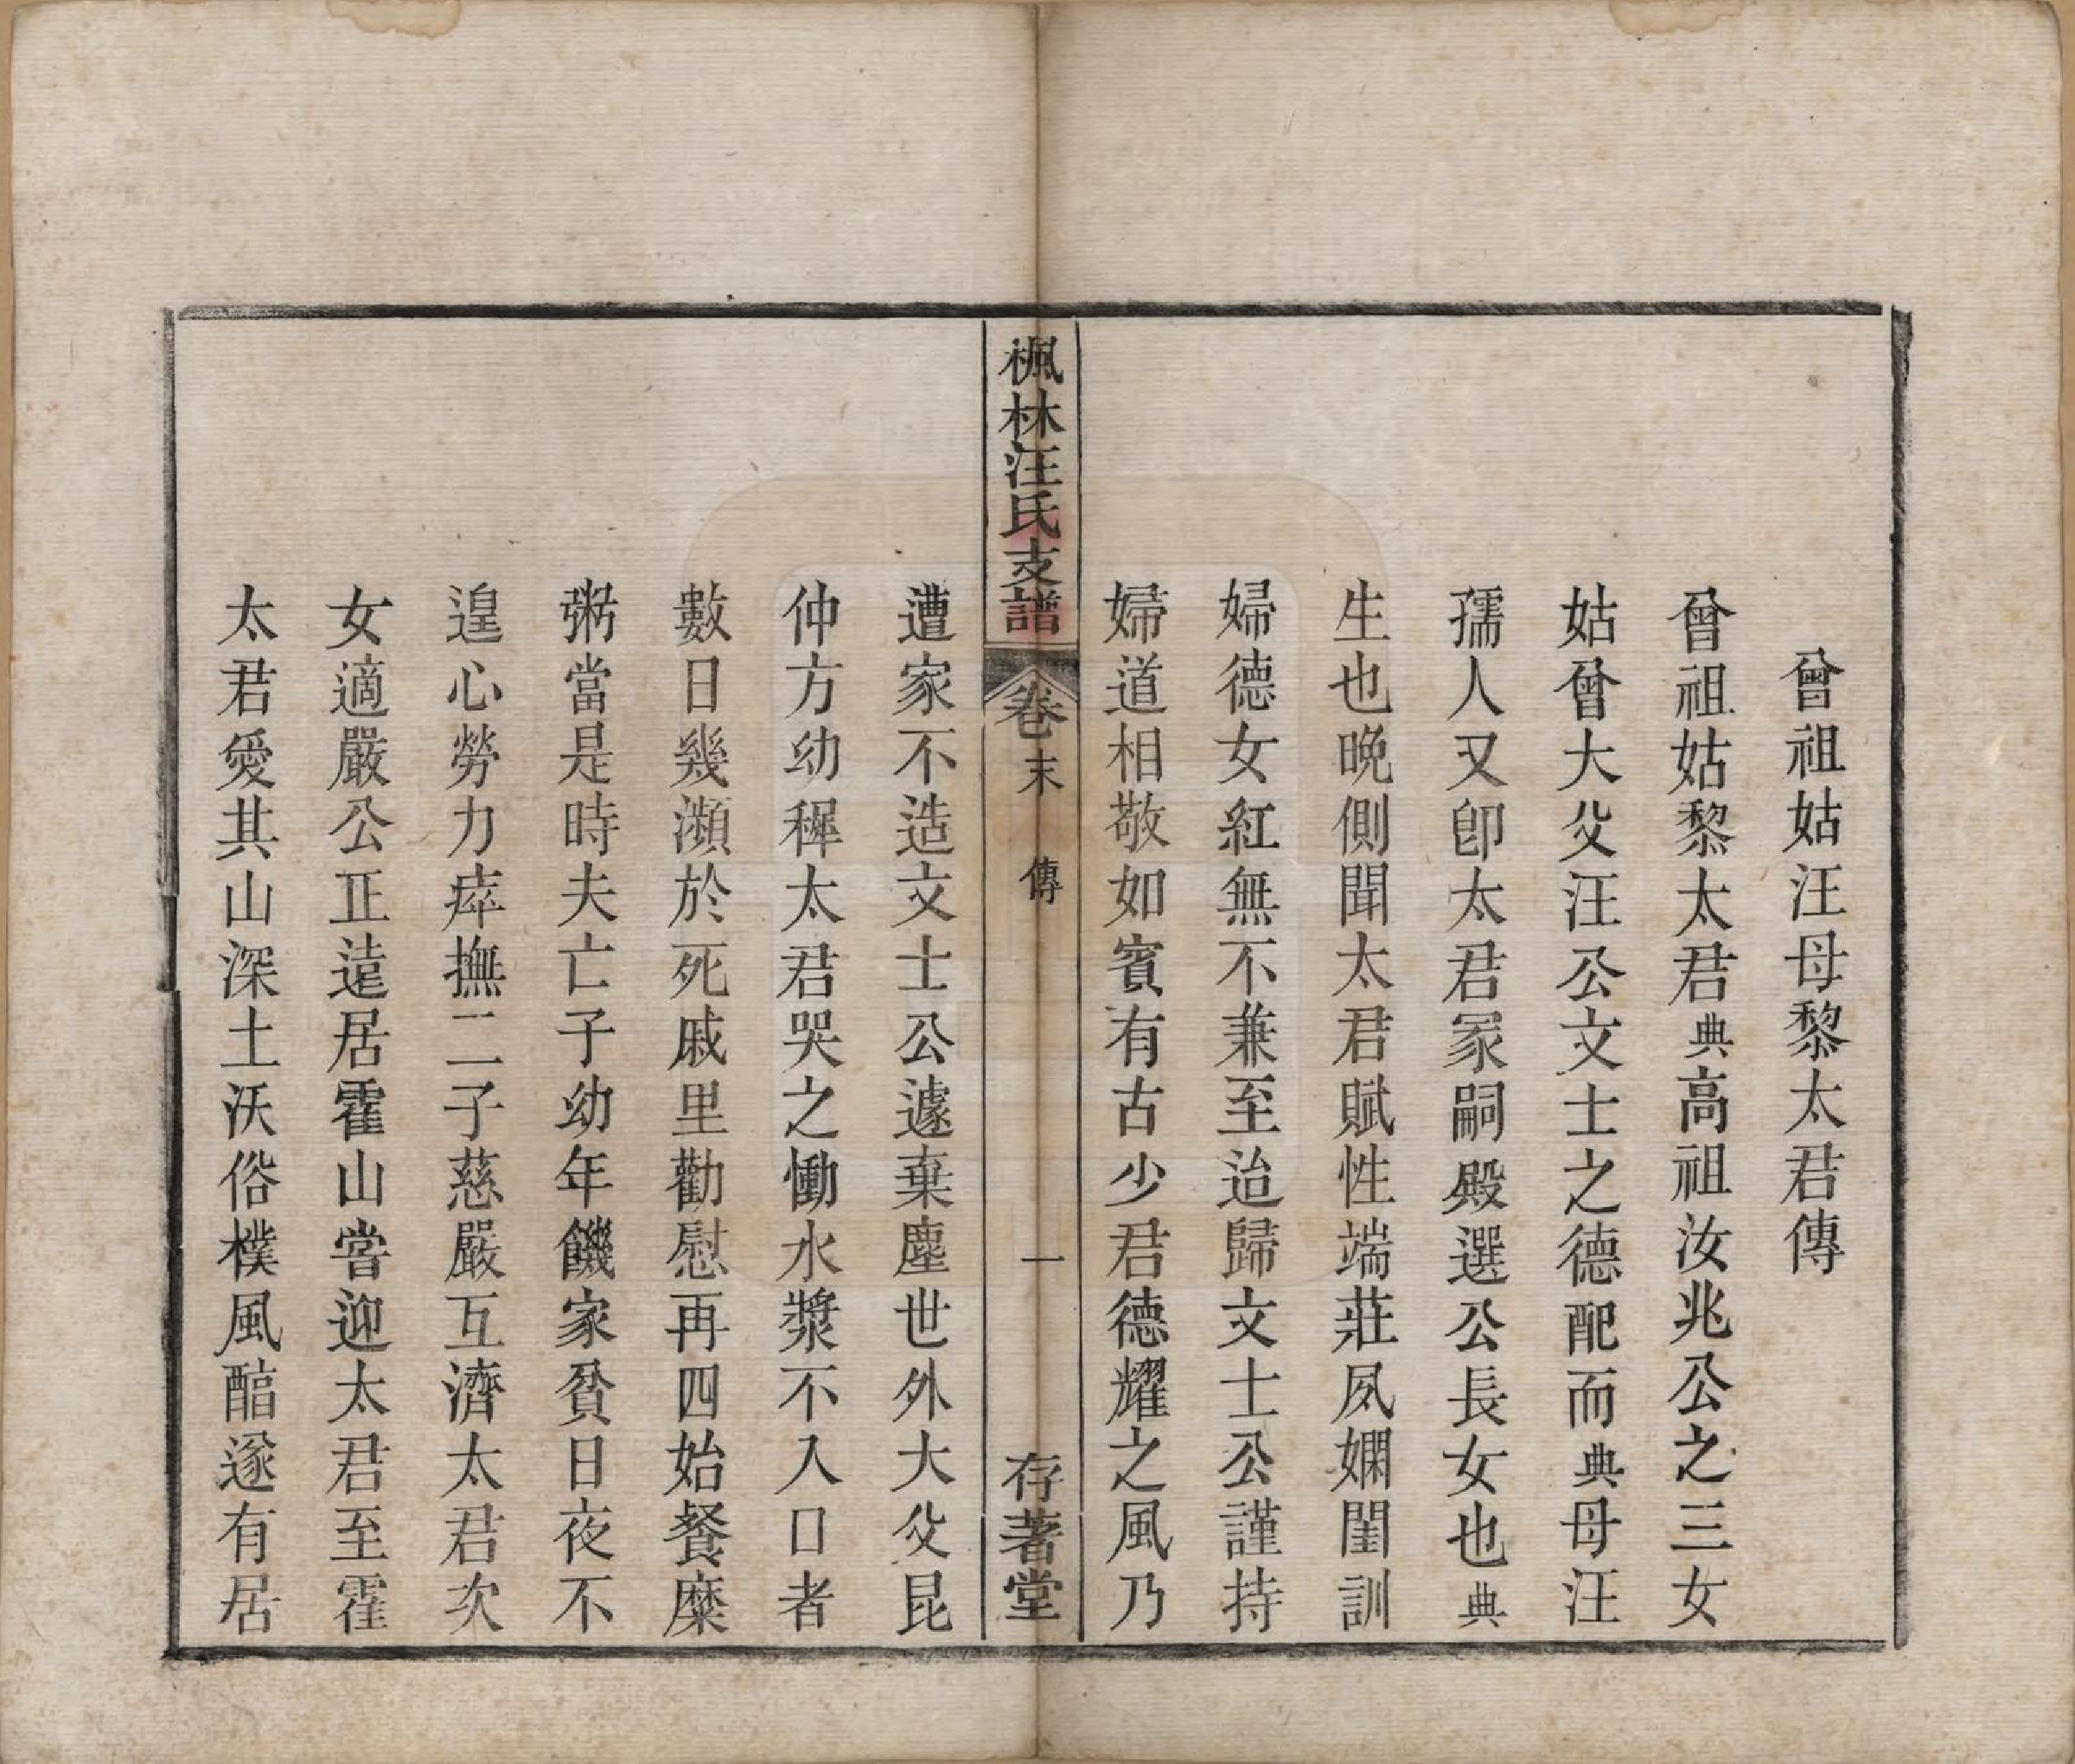 曾祖姑汪母黎太君傳
曾祖姑黎太君典高祖汝兆公之三女
姑曾大父汪公文士之德配而典母汪
孺人又卽太君冢嗣殿選公長女也典
生也晚側聞太君賦性端莊夙嫻閨訓
婦德女紅無不兼至迨歸文士公謹持
婦道相敬如賓有古少君德耀之風乃
楓林汪氏支譜
卷末
傳
一
存著堂
遭家不造文士公遽棄塵世外大父昆
仲方幼穉太君哭之慟水漿不入口者
數日幾瀕於死戚里勸慰再四始餐糜
粥當是時夫亡子幼年饑家貧日夜不
遑心勞力瘁撫二子慈嚴互濟太君次
女適嚴公正遠居霍山嘗迎太君至霍
太君愛其山深土沃俗樸風醕遂有居